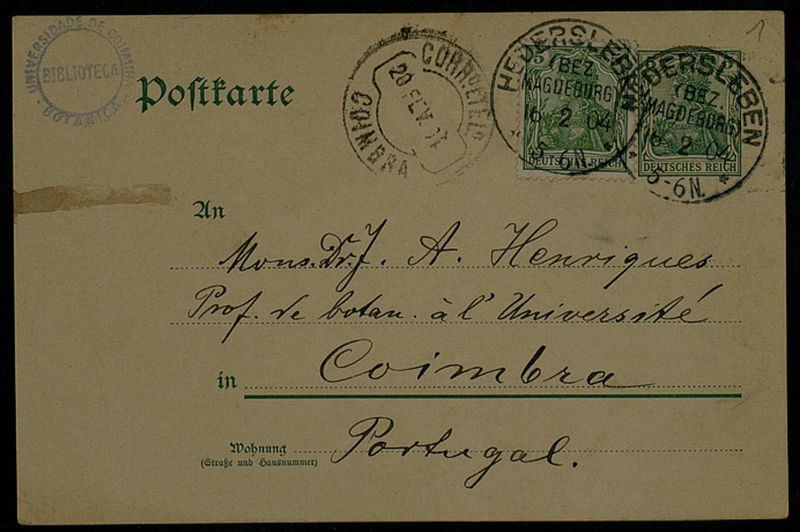 1
UNIVERSIDADE DE COIMBRA
BIBLIOTECA
BOTANICA
Postkarte
CORREIO E TELG
20 FEV.
COIMBRA
5
HEDERSLEBEN
(BEZ.
MAGDEBURG)
16 2 04
5-6N.
DEUTSCHES REICH
HEDERSLEBEN
(BEZ.
MAGDEBURG)
16 2 04
5-6N.
DEUTSCHES REICH
An
Mons. Dr. J. A. Henriques
Prof. de botan. à l'Université
in Coimbra
Wohnung
(Straße und Hausnummer)
Portugal.